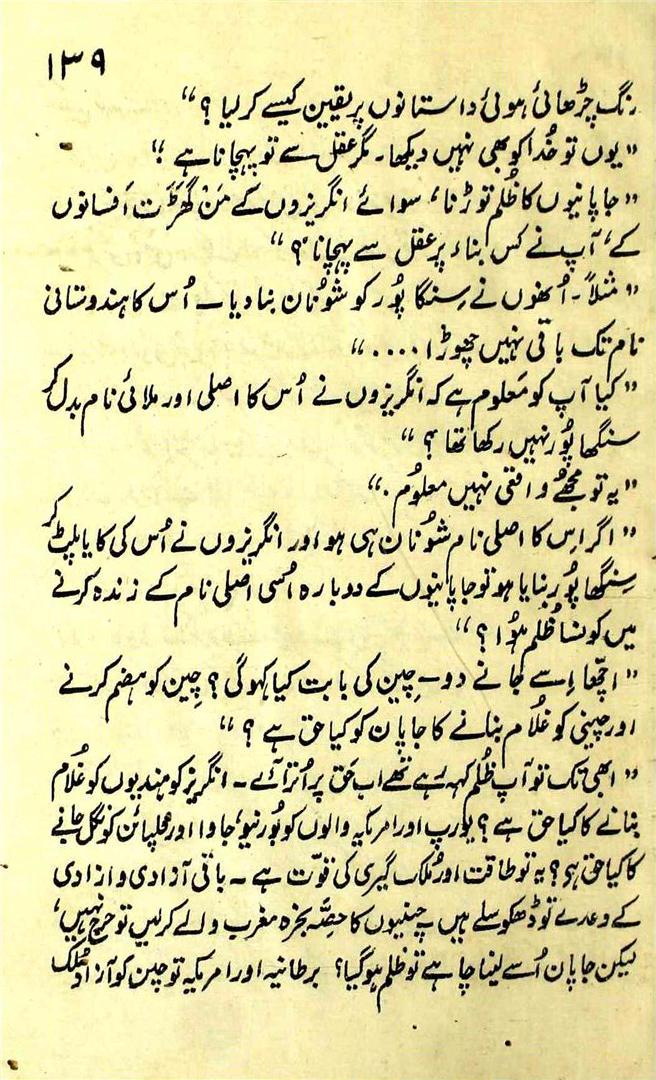 ۱۳۹
رنگ چڑھائی ہوئی داستانوں پر یقین کیسے کرلیا ؟“
”یوں تو خُدا کو بھی نہیں دیکھا۔ مگر عقل سے تو پہچانا ہے ؛“
”جاپانیوں کا ظُلم توڑنا، سوائے انگریزوں کے مَن گھڑت اَفسانوں
کے، آپ نے کس بناء پر عقل سے پہچانا ؟“
”مثلاً۔ اُنھوں نے سِنگا پُور کو شوُنان بنا دیا — اُس کا ہندوستانی
نام تک باقی نہیں چھوڑا ....“
”کیا آپ کو مَعلوم ہے کہ انگریزوں نے اُس کا اصلی اور ملائی نام بدل کر
سنگھا پُور نہیں رکھا تھا ؟“
”یہ تو مجُھے واقعی نہیں معلوُم .“
”اگر اس کا اصلی نام شوُنان ہی ہو اور انگریزوں نے اُس کی کایا پلٹ کر
سِنگھا پُور بنایا ہو تو جاپانیوں کے دوبارہ اُسی اصلی نام کے زندہ کرنے
میں کونسا ظُلم ہوُا ؟“
”اچّھا اِسے جانے دو — چِین کی بابت کیا کہو گی ؟ چِین کو ہضم کرنے
اور چینی کو غلُام بنانے کا جاپان کو کیا حق ہے ؟“
”ابھی تک تو آپ ظُلم کہہ رہے تھے اب حَق پر اُتر آئے — انگریز کو ہندیوں کو غلُام
بنانے کا کیا حق ہے ؟ یورپ اور امریکہ والوں کو بُورنیو، جاوا اور فلپائن کو نگل جانے
کا کیا حق ہی ؟ یہ تو طاقت اور مُلک گیری کی قوّت ہے — باقی آزادی و ازادی
کے وعدے تو ڈھکوسلے ہیں چینیوں کا حِصّہ بخرہ مغرب والے کرلیں تو حرج نہیں،
لیکن جاپان اُسے لینا چاہے تو ظلم ہو گیا ؟ برطانیہ اور امریکہ تو چین کو آزاد مُلک